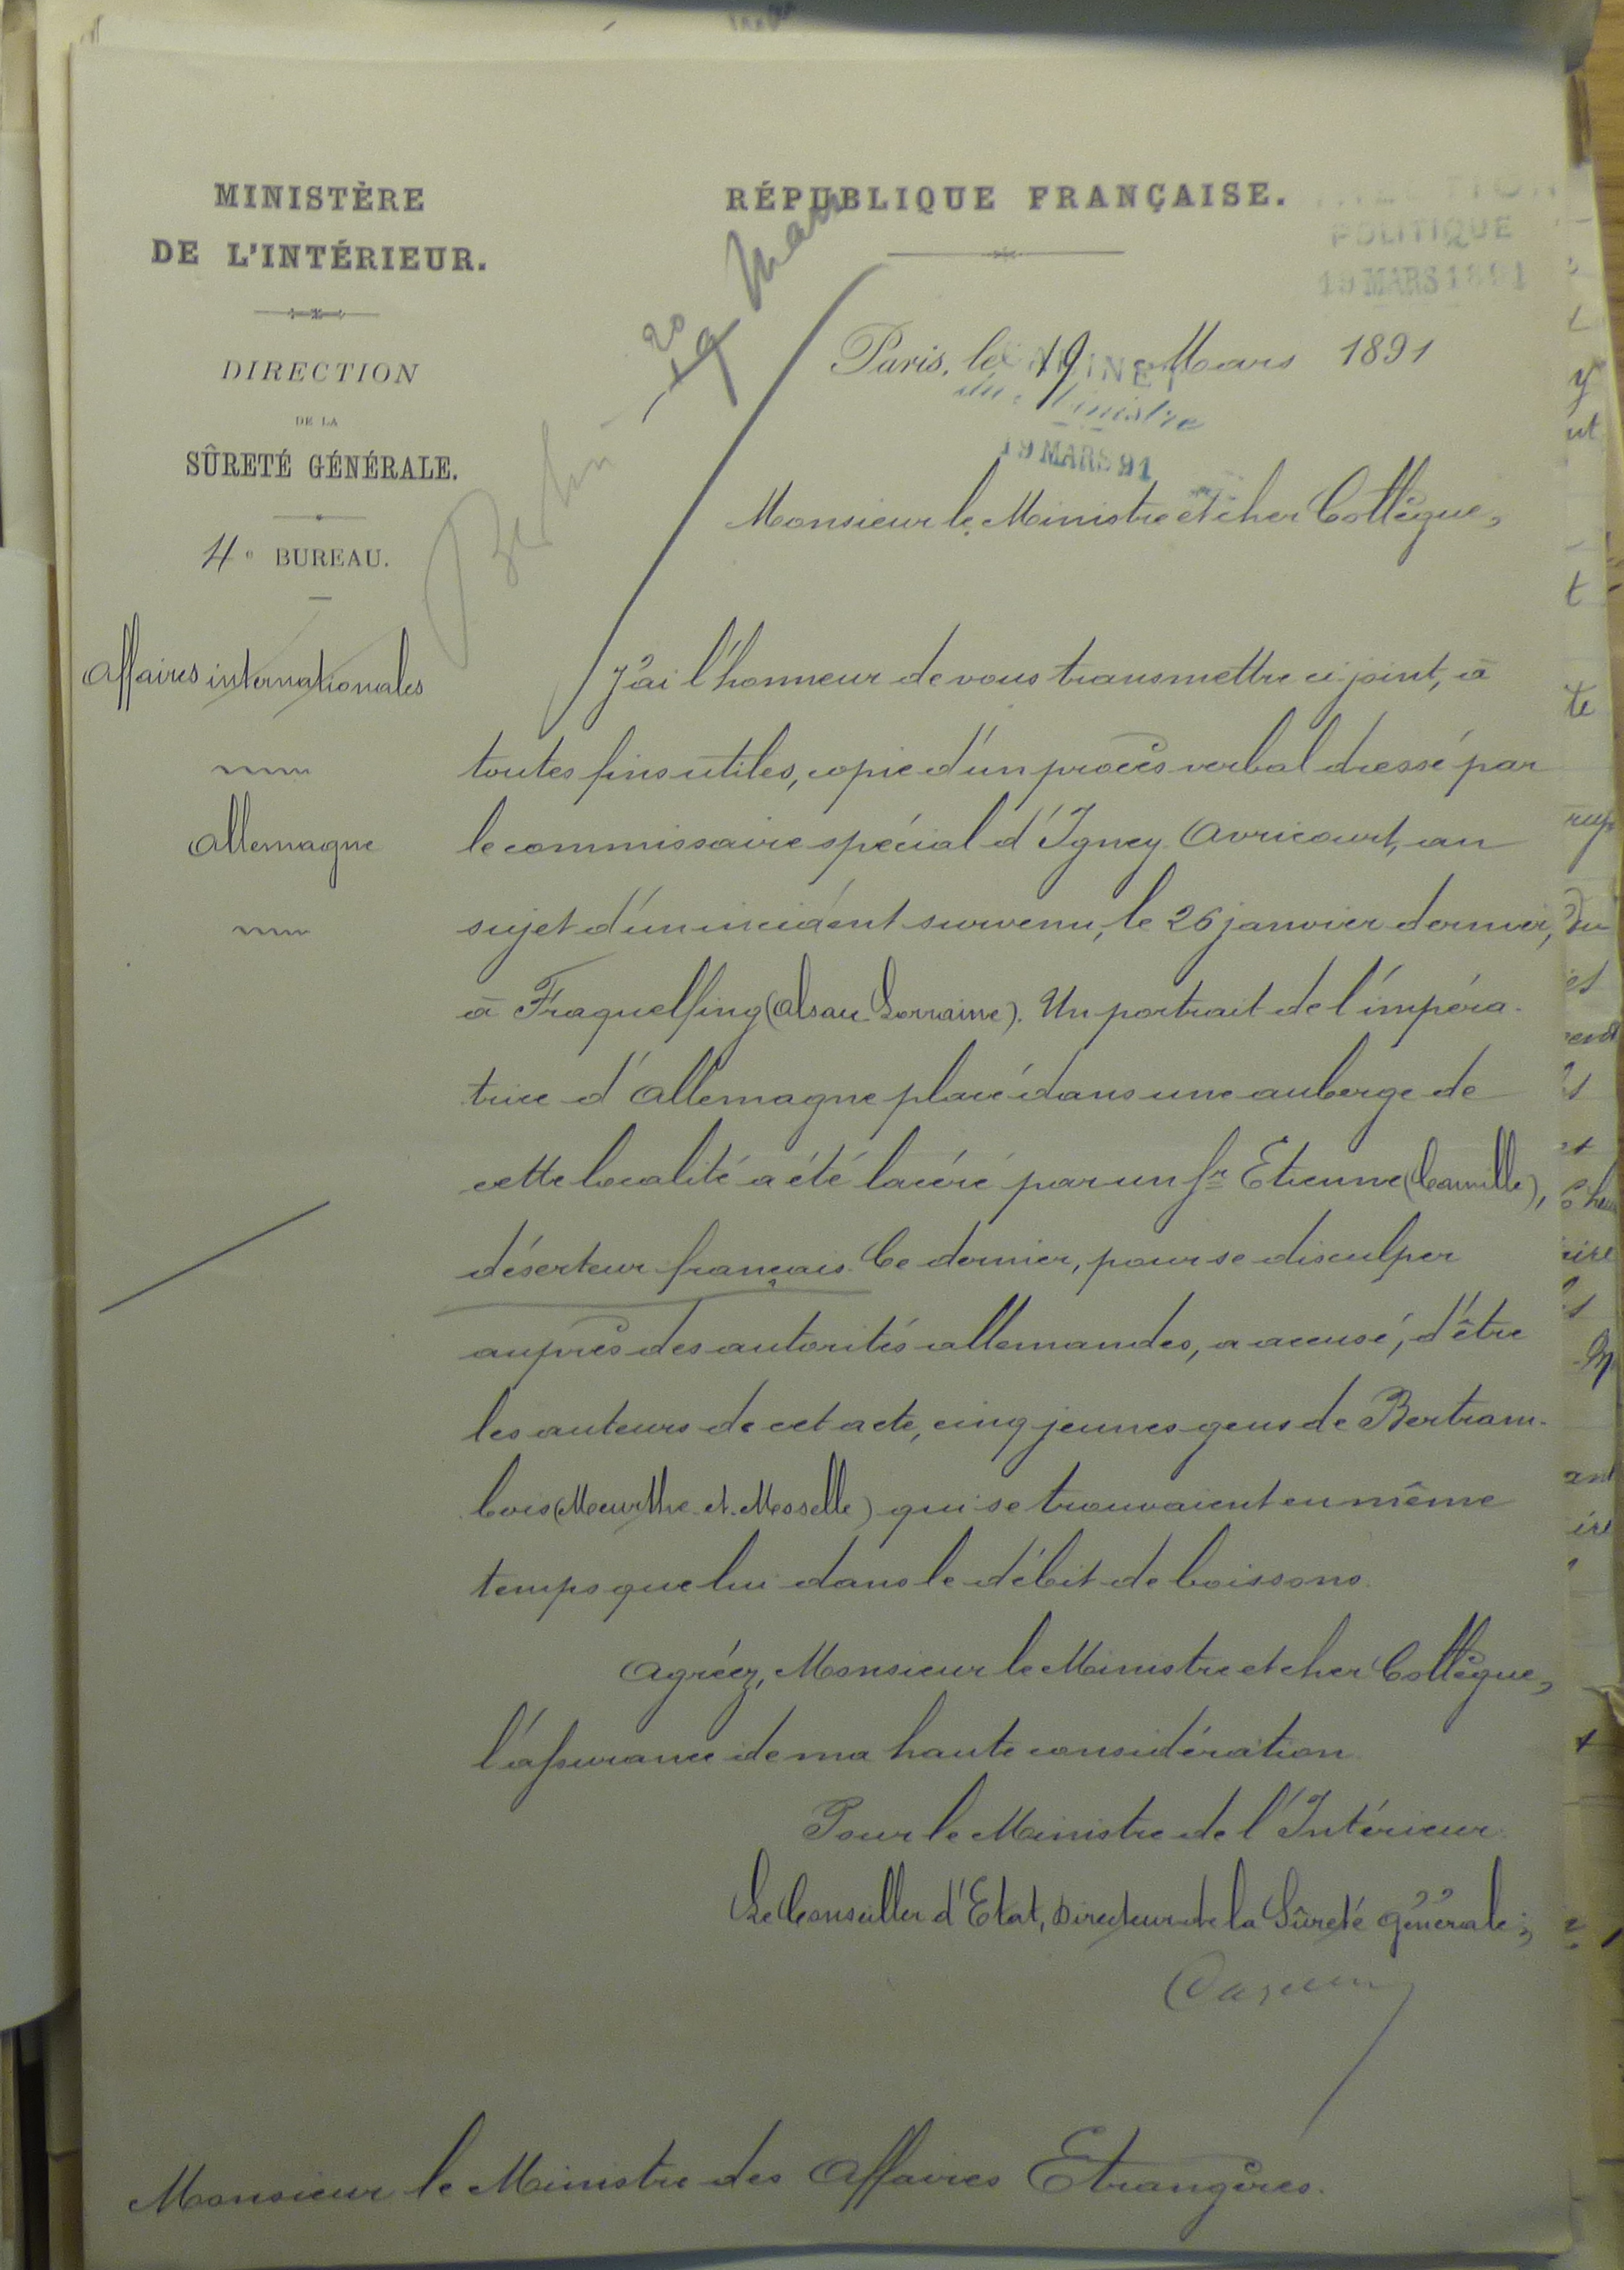 MINISTÈRE
DE L'INTÉRIEUR.
DIRECTION
DE LA
SÛRETÉ GÉNÉRALE.
4e BUREAU.
Affaires internationales
Allemagne
RÉPUBLIQUE FRANÇAISE.
POLITIQUE
19 MARS 1891
Berlin
20
19 Mars
Paris, le 19 Mars 1891
CABINET
du Ministre
19 MARS 91
Monsieur le Ministre et cher Collègue,
J'ai l'honneur de vous transmettre ci joint, à
toutes fins utiles, copie d'un procès verbal dressé par
le commissaire spécial d'Igney Avricourt, au
sujet d'un incident survenu, le 26 janvier dernier,
à Fraquelfing (Alsace Lorraine). Un portrait de l'impéra-
trice d'Allemagne placé dans une auberge de
cette localité a été lacéré par un sr Etienne (Camille),
déserteur français. Ce dernier, pour se disculper
auprès des autorités allemandes, a accusé, d'être
les auteurs de cet acte, cinq jeunes gens de Bertram-
bois (Meurthe et Moselle) qui se trouvaient en même
temps que lui dans le débit de boissons.
Agréez, Monsieur le Ministre et cher Collègue,
l'assurance de ma haute considération.
Pour le Ministre de l'Intérieur.
Le Conseiller d'Etat, Directeur de la Sûreté générale;
Monsieur le Ministre des Affaires Etrangères.